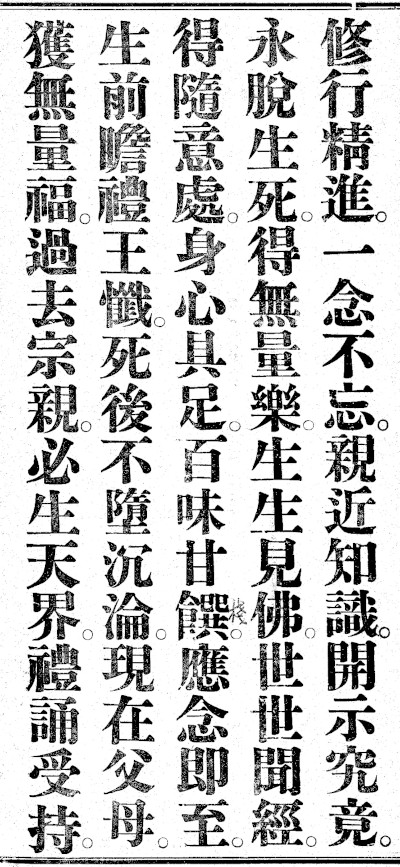 修行精進。一念不忘。親近知識。開示究竟。
永脫生死。得無量樂。生生見佛。世世聞經。
得隨意處。身心具足。百味甘饌。應念即至。
生前瞻禮王懺。死後不墮沉淪。現在父母。
獲無量福。過去宗親。必生天界。禮誦受持。